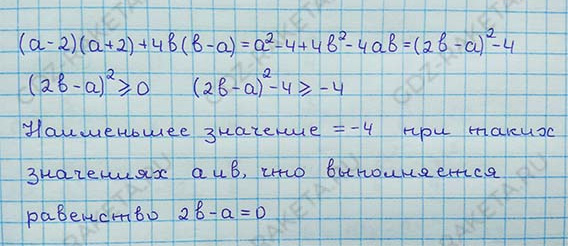 (a-2)(a+2)+4в(в-a)=a²-4+4в²-4aв=(2в-a)²-4
(2в-a)²⩾0 (2в-a)²-4⩾-4
Наименьшее значение =-4 при таких
значениях a и в, что выполняется
равенство 2в-a=0